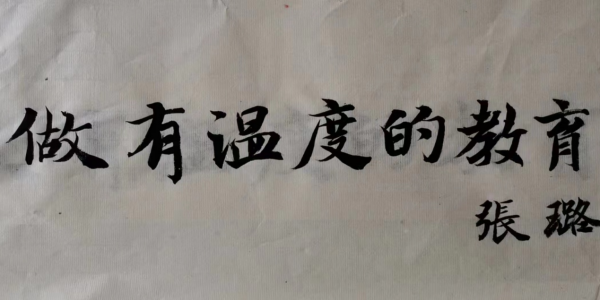 做有温度的教育
張璐